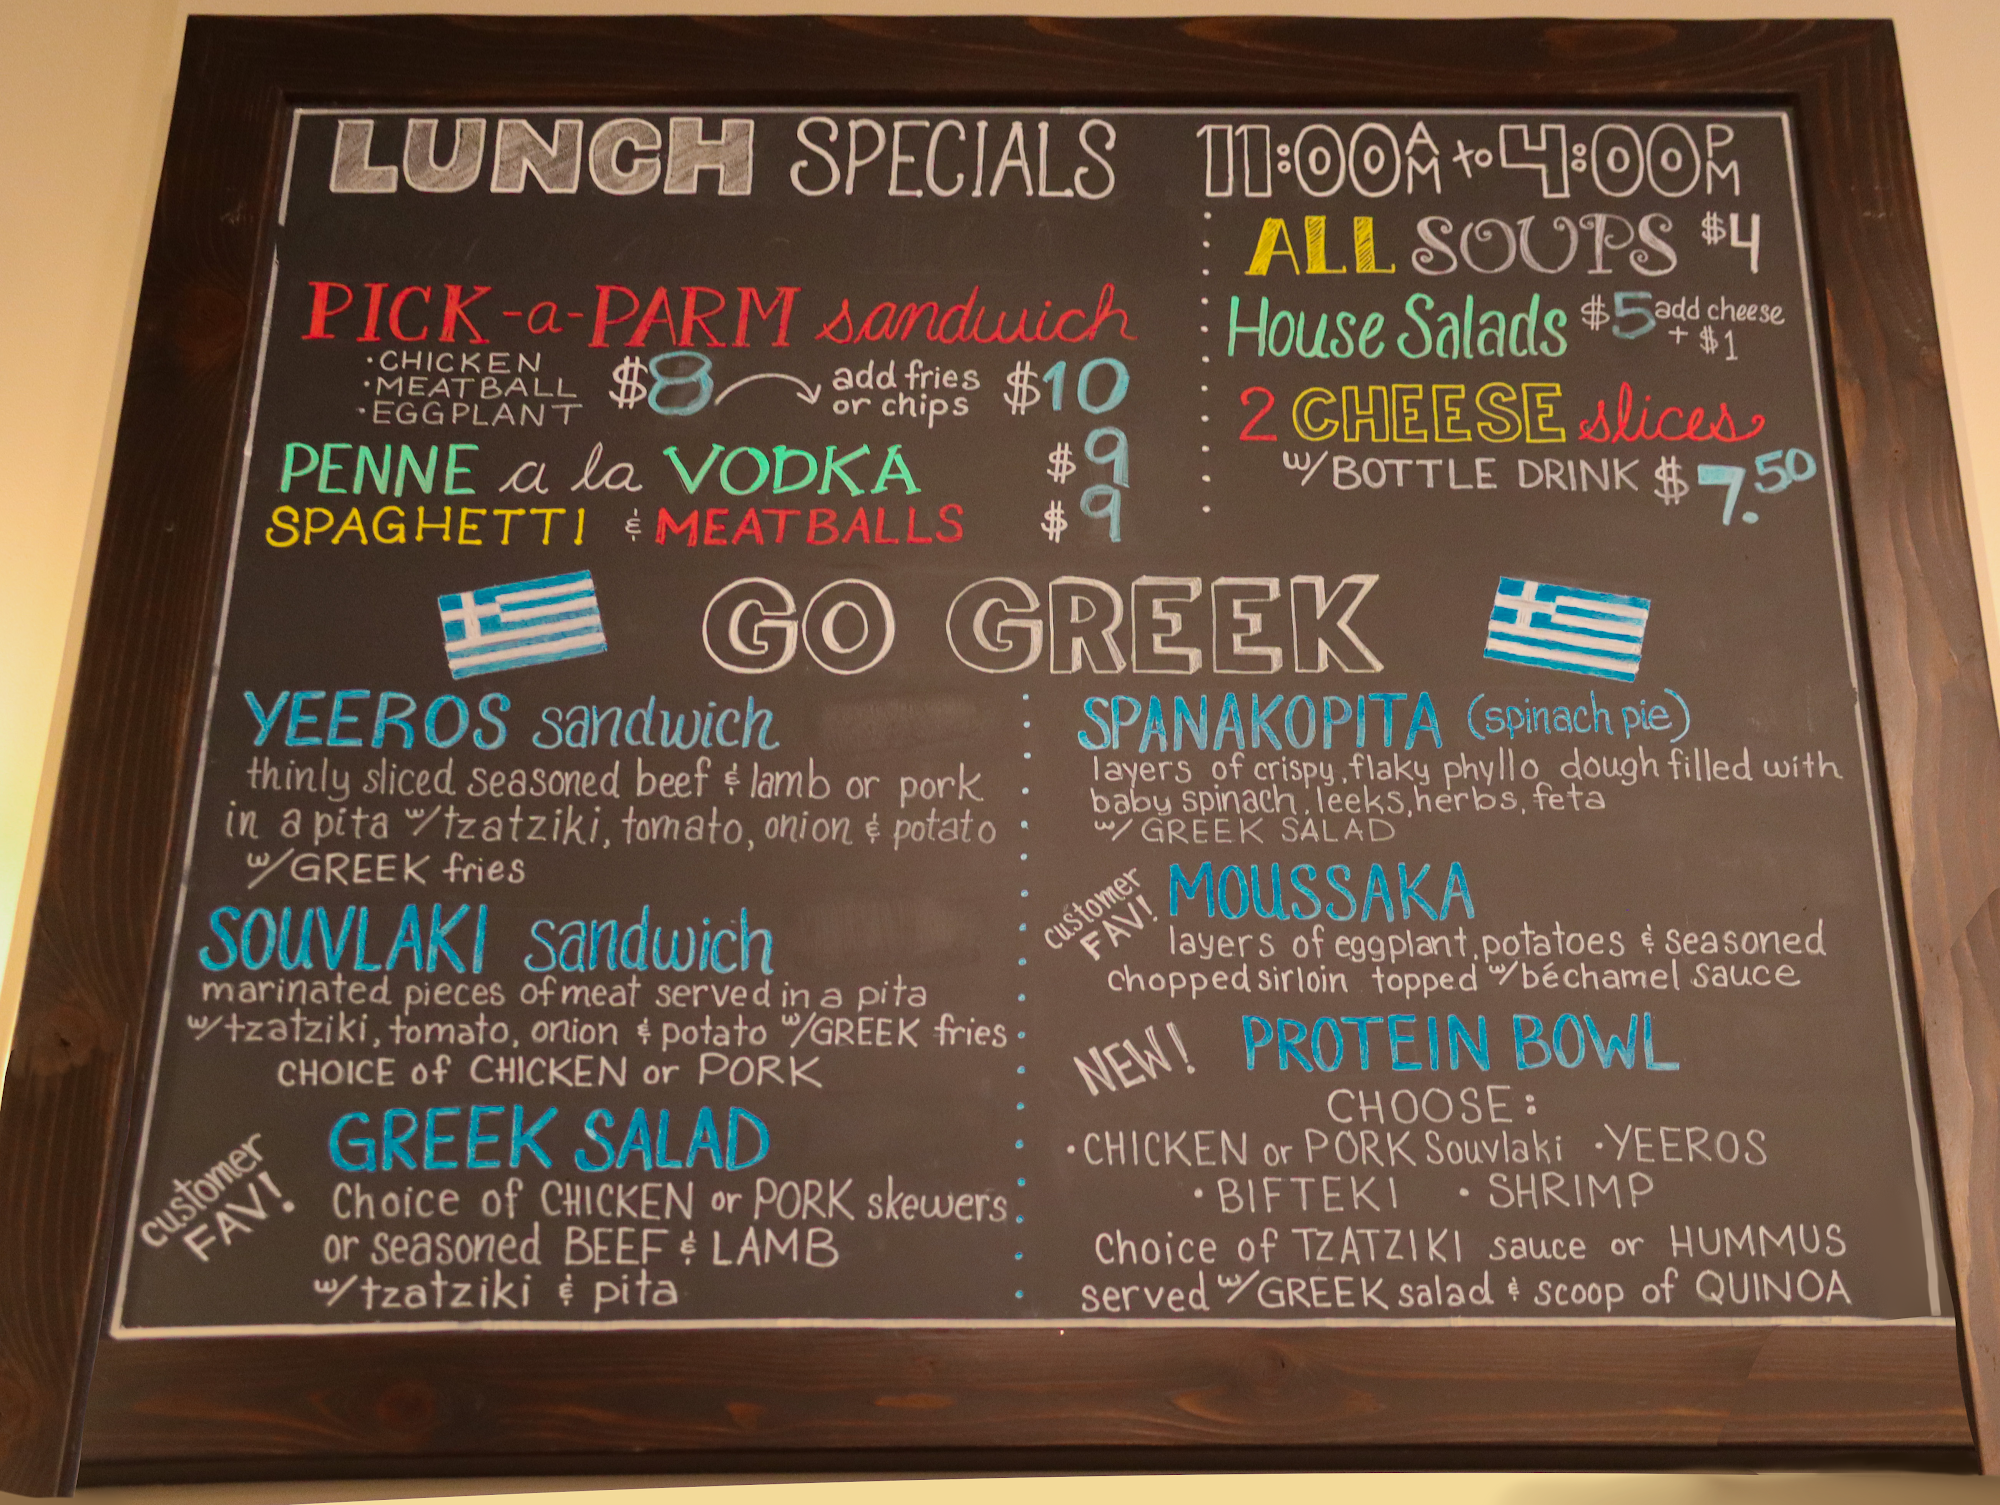 LUNCH SPECIALS 11:00AM to 4:00PM
PICK-a-PARM sandwich
·CHICKEN
·MEATBALL
·EGGPLANT
$8 add fries or chips $10
PENNE a la VODKA $9
SPAGHETTI & MEATBALLS $9
ALL SOUPS $4
House Salads $5 add cheese + $1
2 CHEESE slices
w/BOTTLE DRINK $7.50
GO GREEK
YEEROS sandwich
thinly sliced seasoned beef & lamb or pork
in a pita w/tzatziki, tomato, onion & potato
w/GREEK fries
SOUVLAKI sandwich
marinated pieces of meat served in a pita
w/tzatziki, tomato, onion & potato w/GREEK fries
CHOICE of CHICKEN or PORK
customer FAV!
GREEK SALAD
Choice of CHICKEN or PORK skewers
or seasoned BEEF & LAMB
w/tzatziki & pita
SPANAKOPITA (spinach pie)
layers of crispy, flaky phyllo dough filled with
baby spinach, leeks, herbs, feta
w/ GREEK SALAD
customer FAV!
MOUSSAKA
layers of eggplant, potatoes & seasoned
chopped sirloin topped w/béchamel sauce
NEW!
PROTEIN BOWL
CHOOSE:
·CHICKEN or PORK Souvlaki ·YEEROS
·BIFTEKI ·SHRIMP
Choice of TZATZIKI sauce or HUMMUS
served w/GREEK salad & scoop of QUINOA